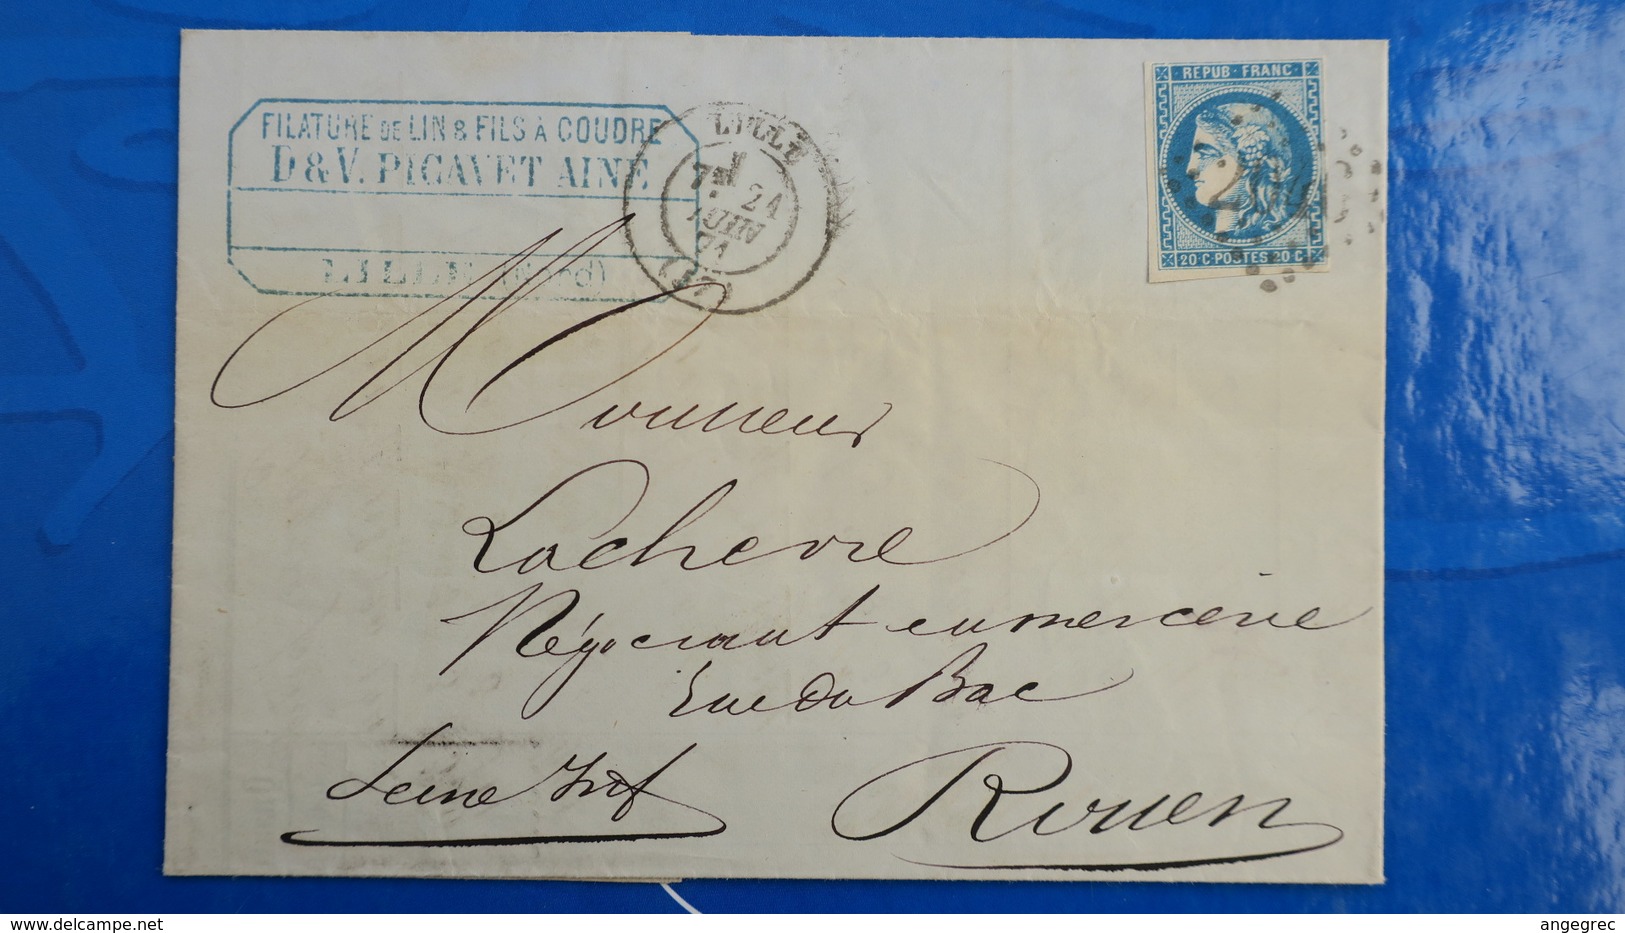 FILATURE DE LIN & FILS À COUDRE
D & V. PICAVET AINÉ
LILLE (Nord)
LILLE
7E
21
JUIN
71
(57)
REPUB·FRANC
20·C·POSTES·20·C
Monsieur
Lachevre
Négociant en mercerie
Rue du Bac
Seine Inf
Rouen
www.delcampe.net
angegrec